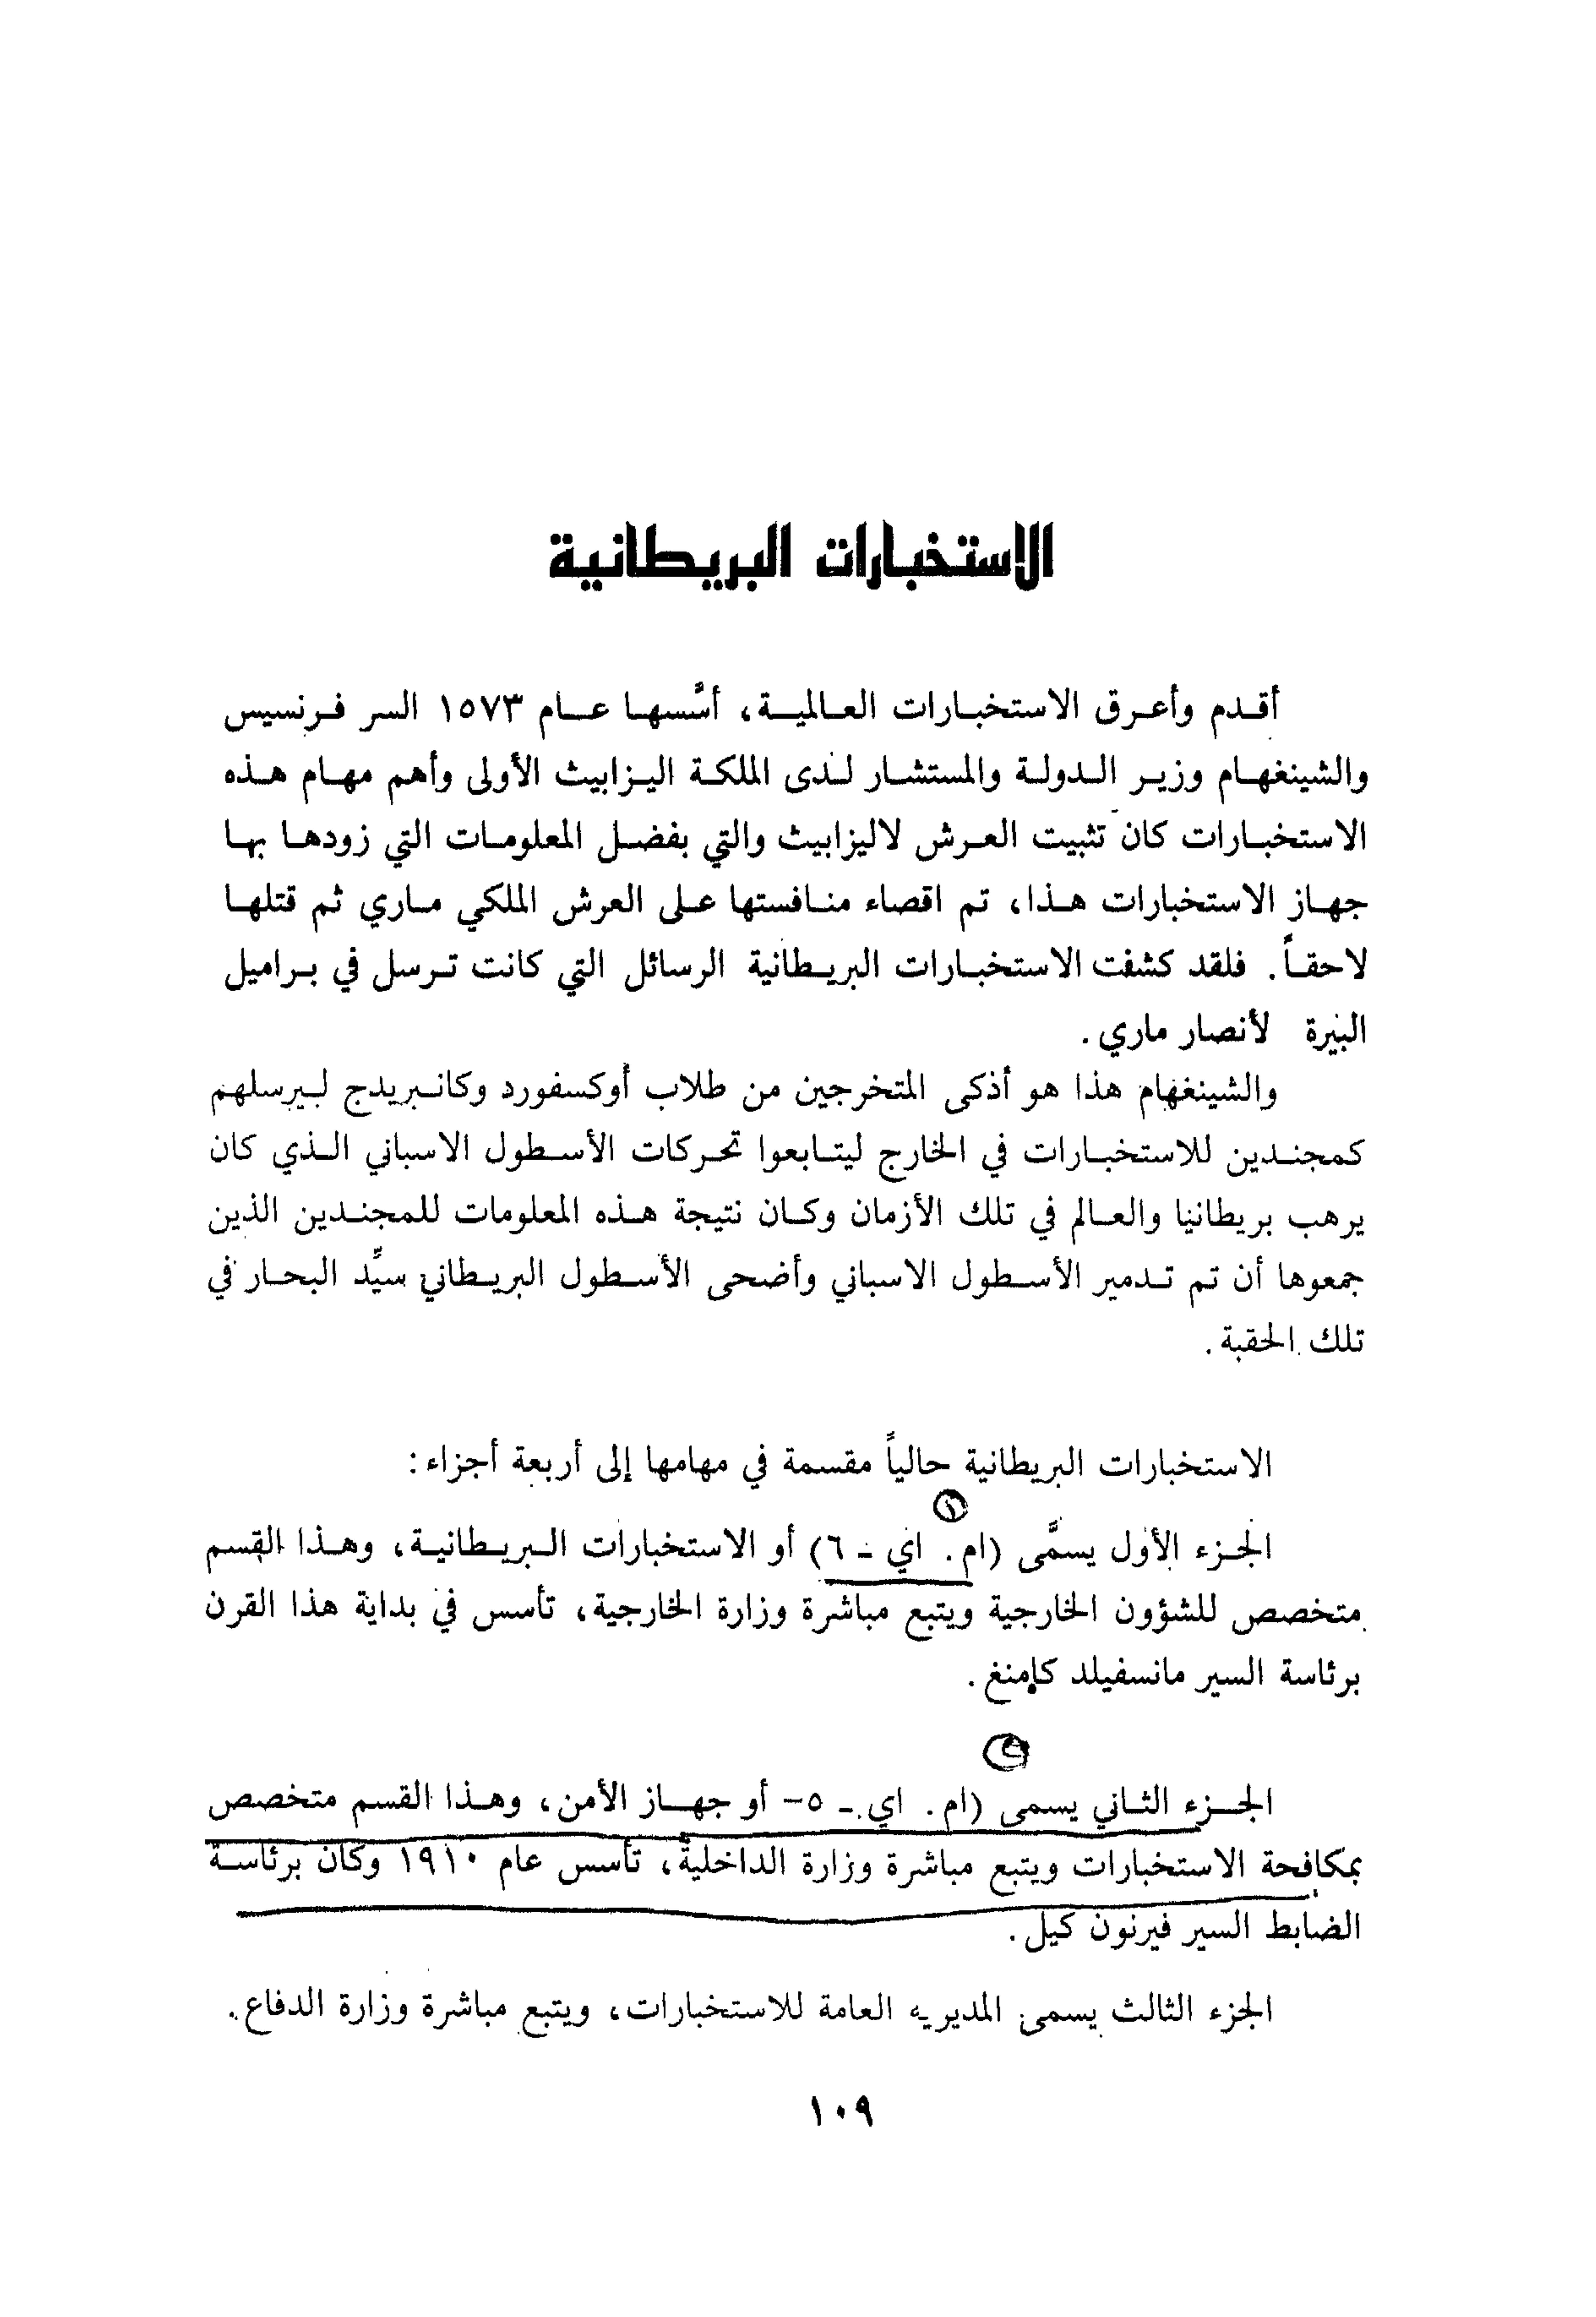 الاستخبارات البريطانية
أقدم وأعرق الاستخبارات العالمية، أسَّسها عام ١٥٧٣ السر فرنسيس
والشينغهام وزير الدولة والمستشار لدى الملكة اليزابيث الأولى وأهم مهام هذه
الاستخبارات كان تثبيت العرش لاليزابيث والتي بفضل المعلومات التي زودها بها
جهاز الاستخبارات هذا، تم اقصاء منافستها على العرش الملكي ماري ثم قتلها
لاحقاً. فلقد كشفت الاستخبارات البريطانية الرسائل التي كانت ترسل في براميل
البيرة لأنصار ماري.
والشينغهام هذا هو أذكى المتخرجين من طلاب أوكسفورد وكانبريدج ليرسلهم
كمجندين للاستخبارات في الخارج ليتابعوا تحركات الأسطول الاسباني الذي كان
يرهب بريطانيا والعالم في تلك الأزمان وكان نتيجة هذه المعلومات للمجندين الذين
جمعوها أن تم تدمير الأسطول الاسباني وأضحى الأسطول البريطاني سيِّد البحار في
تلك الحقبة.
الاستخبارات البريطانية حالياً مقسمة في مهامها إلى أربعة أجزاء:
١
الجزء الأول يسمَّى (ام. اي - ٦) أو الاستخبارات البريطانية، وهذا القسم
متخصص للشؤون الخارجية ويتبع مباشرة وزارة الخارجية، تأسس في بداية هذا القرن
برئاسة السير مانسفيلد كامنغ.
الجزء الثاني يسمى (ام. اي - ٥- أو جهاز الأمن، وهذا القسم متخصص
بمكافحة الاستخبارات ويتبع مباشرة وزارة الداخلية، تأسس عام ١٩١٠ وكان برئاسة
الضابط السير فيرنون كيل.
الجزء الثالث يسمى المديريه العامة للاستخبارات، ويتبع مباشرة وزارة الدفاع.
١٠٩